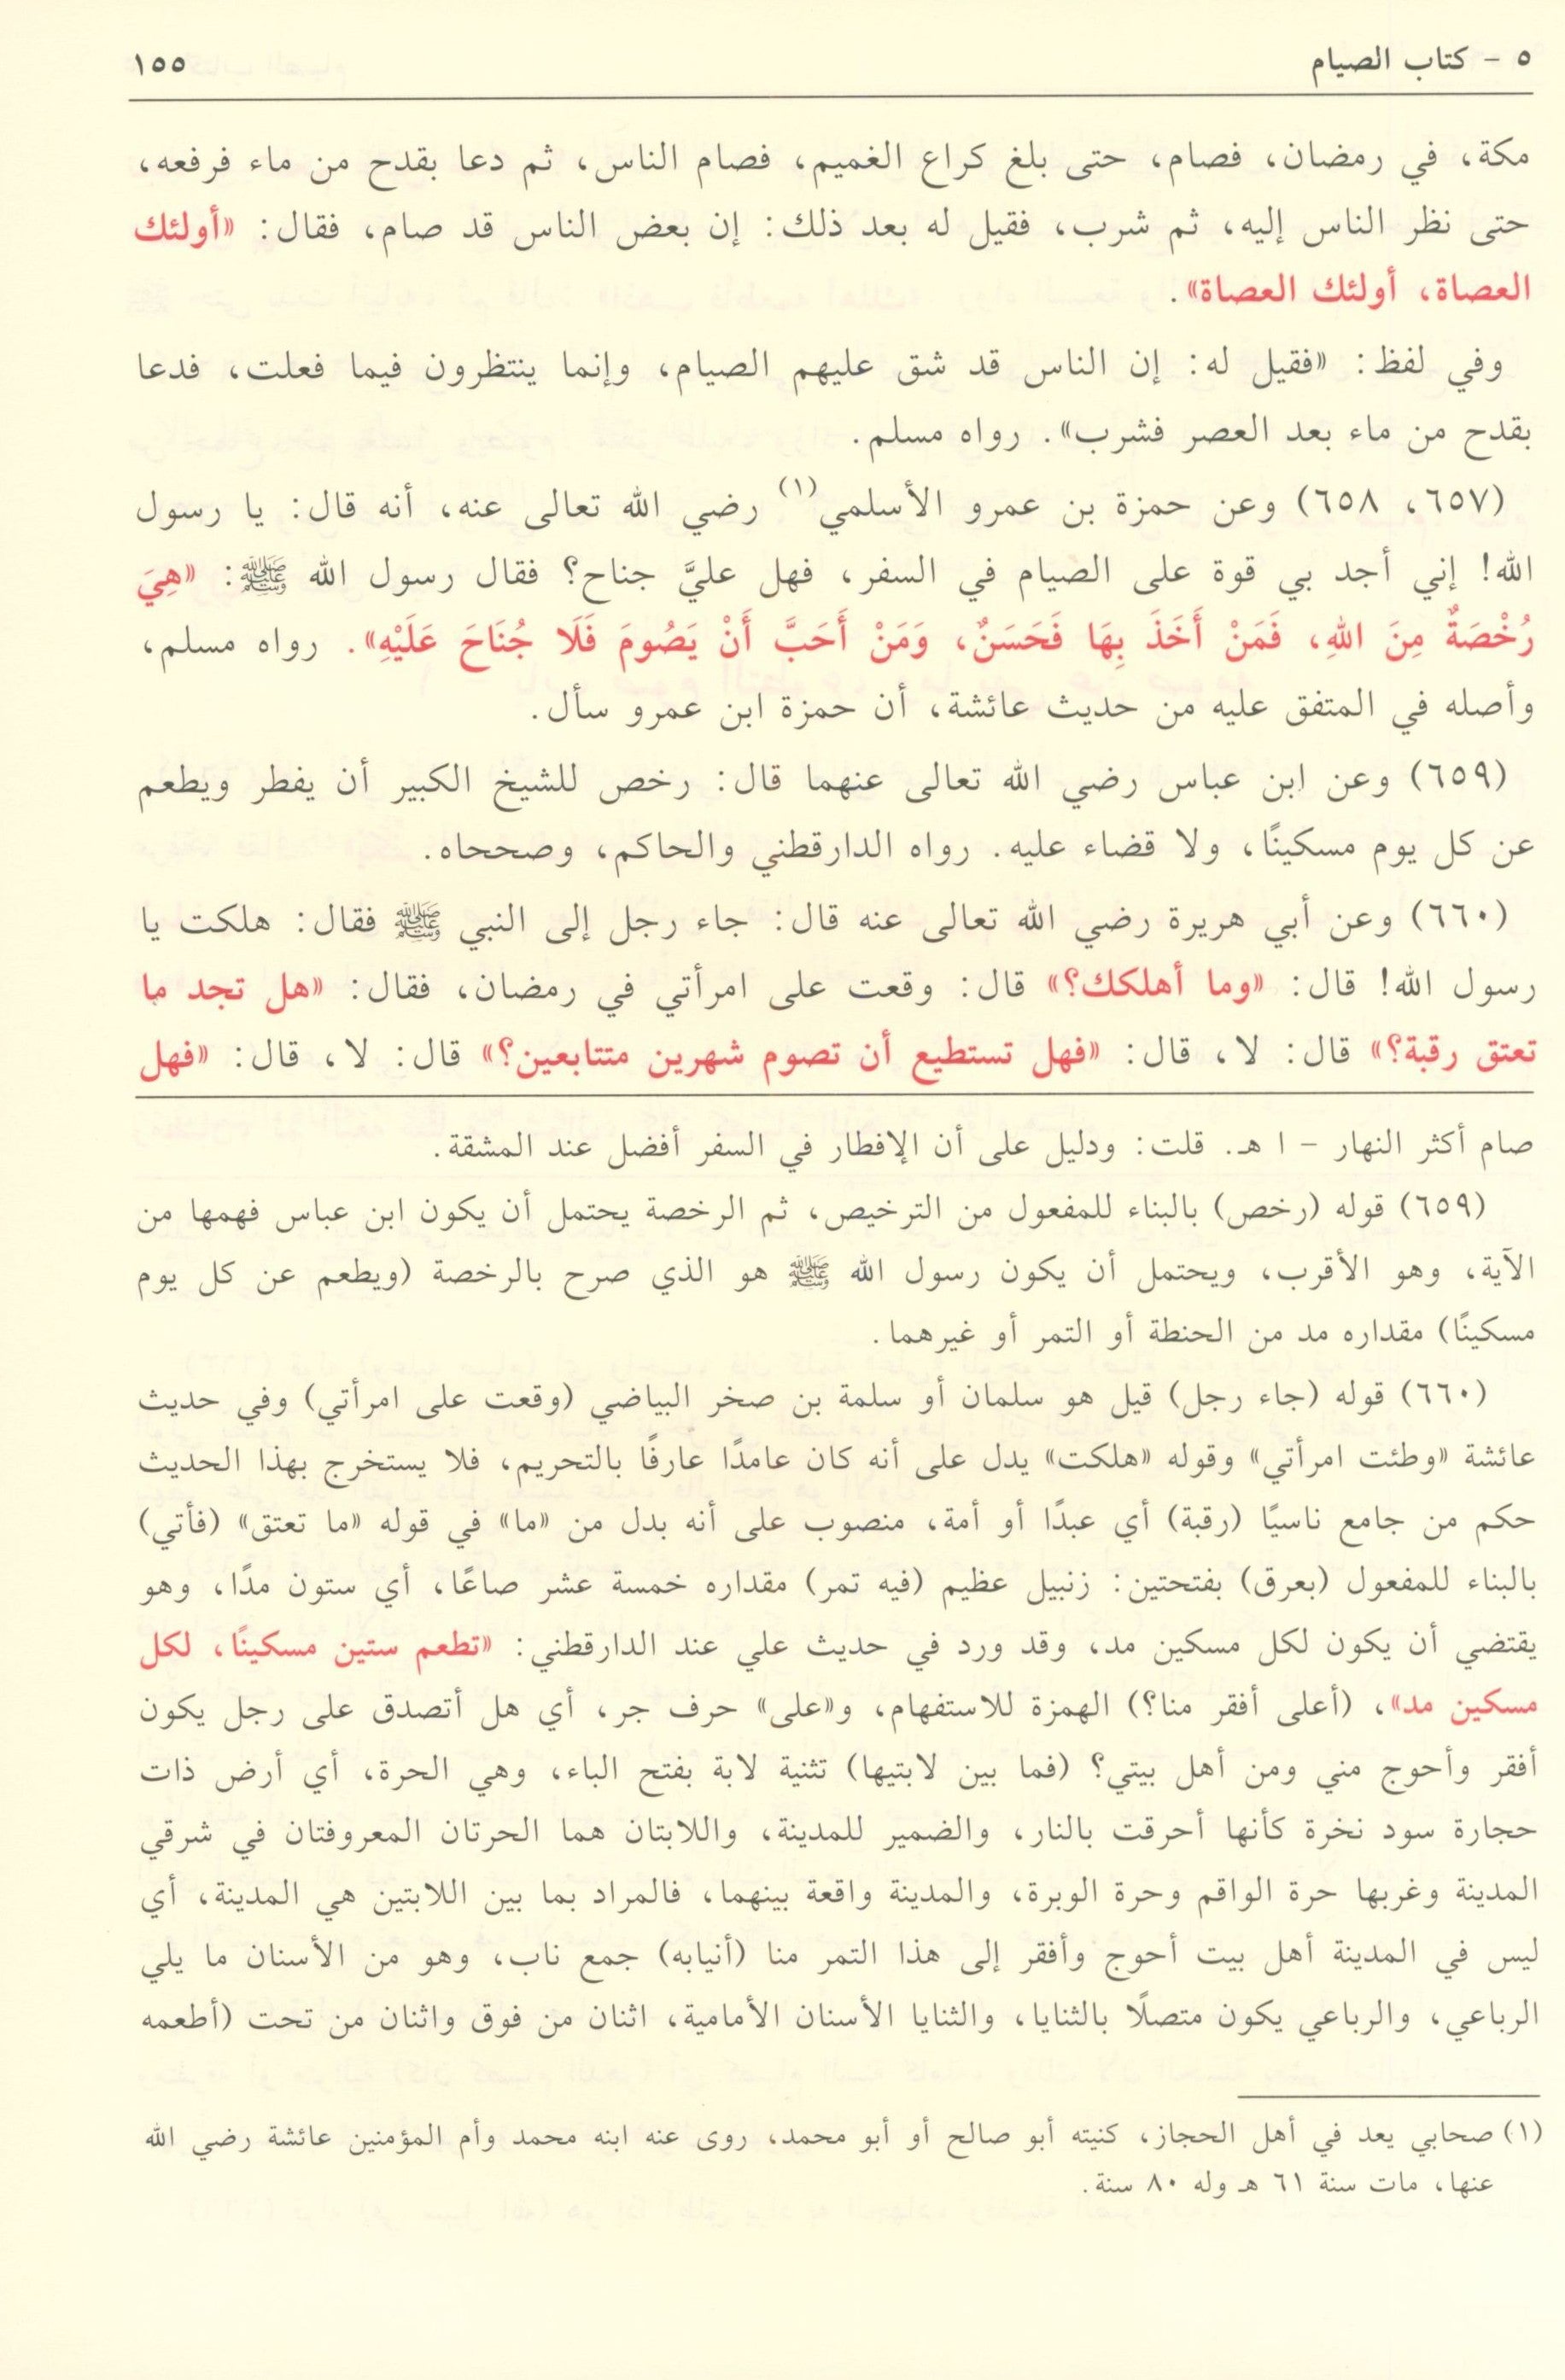 ٥ - كتاب الصيام ١٥٥
مكة، في رمضان، فصام، حتى بلغ كراع الغميم، فصام الناس، ثم دعا بقدح من ماء فرفعه،
حتى نظر الناس إليه، ثم شرب، فقيل له بعد ذلك: إن بعض الناس قد صام، فقال: «أولئك
العصاة، أولئك العصاة».
وفي لفظ: «فقيل له: إن الناس قد شق عليهم الصيام، وإنما ينتظرون فيما فعلت، فدعا
بقدح من ماء بعد العصر فشرب». رواه مسلم.
(٦٥٧، ٦٥٨) وعن حمزة بن عمرو الأسلمي(١) رضي الله تعالى عنه، أنه قال: يا رسول
الله! إني أجد بي قوة على الصيام في السفر، فهل عليَّ جناح؟ فقال رسول الله ﷺ: «هِيَ
رُخْصَةٌ مِنَ اللهِ، فَمَنْ أَخَذَ بِهَا فَحَسَنٌ، وَمَنْ أَحَبَّ أَنْ يَصُومَ فَلَا جُنَاحَ عَلَيْهِ». رواه مسلم،
وأصله في المتفق عليه من حديث عائشة، أن حمزة ابن عمرو سأل.
(٦٥٩) وعن ابن عباس رضي الله تعالى عنهما قال: رخص للشيخ الكبير أن يفطر ويطعم
عن كل يوم مسكينًا، ولا قضاء عليه. رواه الدارقطني والحاكم، وصححاه.
(٦٦٠) وعن أبي هريرة رضي الله تعالى عنه قال: جاء رجل إلى النبي ﷺ فقال: هلكت يا
رسول الله! قال: «وما أهلكك؟» قال: وقعت على امرأتي في رمضان، فقال: «هل تجد ما
تعتق رقبة؟» قال: لا، قال: «فهل تستطيع أن تصوم شهرين متتابعين؟» قال: لا، قال: «فهل
صام أكثر النهار - ا هـ. قلت: ودليل على أن الإفطار في السفر أفضل عند المشقة.
(٦٥٩) قوله (رخص) بالبناء للمفعول من الترخيص، ثم الرخصة يحتمل أن يكون ابن عباس فهمها من
الآية، وهو الأقرب، ويحتمل أن يكون رسول الله ﷺ هو الذي صرح بالرخصة (ويطعم عن كل يوم
مسكينًا) مقداره مد من الحنطة أو التمر أو غيرهما.
(٦٦٠) قوله (جاء رجل) قيل هو سلمان أو سلمة بن صخر البياضي (وقعت على امرأتي) وفي حديث
عائشة «وطئت امرأتي» وقوله «هلكت» يدل على أنه كان عامدًا عارفًا بالتحريم، فلا يستخرج بهذا الحديث
حكم من جامع ناسيًا (رقبة) أي عبدًا أو أمة، منصوب على أنه بدل من «ما» في قوله «ما تعتق» (فأتي)
بالبناء للمفعول (بعرق) بفتحتين: زنبيل عظيم (فيه تمر) مقداره خمسة عشر صاعًا، أي ستون مدًا، وهو
يقتضي أن يكون لكل مسكين مد، وقد ورد في حديث علي عند الدارقطني: «تطعم ستين مسكينًا، لكل
مسكين مد»، (أعلى أفقر منا؟) الهمزة للاستفهام، و«على» حرف جر، أي هل أتصدق على رجل يكون
أفقر وأحوج مني ومن أهل بيتي؟ (فما بين لابتيها) تثنية لابة بفتح الباء، وهي الحرة، أي أرض ذات
حجارة سود نخرة كأنها أحرقت بالنار، والضمير للمدينة، واللابتان هما الحرتان المعروفتان في شرقي
المدينة وغربها حرة الواقم وحرة الوبرة، والمدينة واقعة بينهما، فالمراد بما بين اللابتين هي المدينة، أي
ليس في المدينة أهل بيت أحوج وأفقر إلى هذا التمر منا (أنيابه) جمع ناب، وهو من الأسنان ما يلي
الرباعي، والرباعي يكون متصلًا بالثنايا، والثنايا الأسنان الأمامية، اثنان من فوق واثنان من تحت (أطعمه
(١) صحابي يعد في أهل الحجاز، كنيته أبو صالح أو أبو محمد، روى عنه ابنه محمد وأم المؤمنين عائشة رضي الله
عنها، مات سنة ٦١ هـ وله ٨٠ سنة.